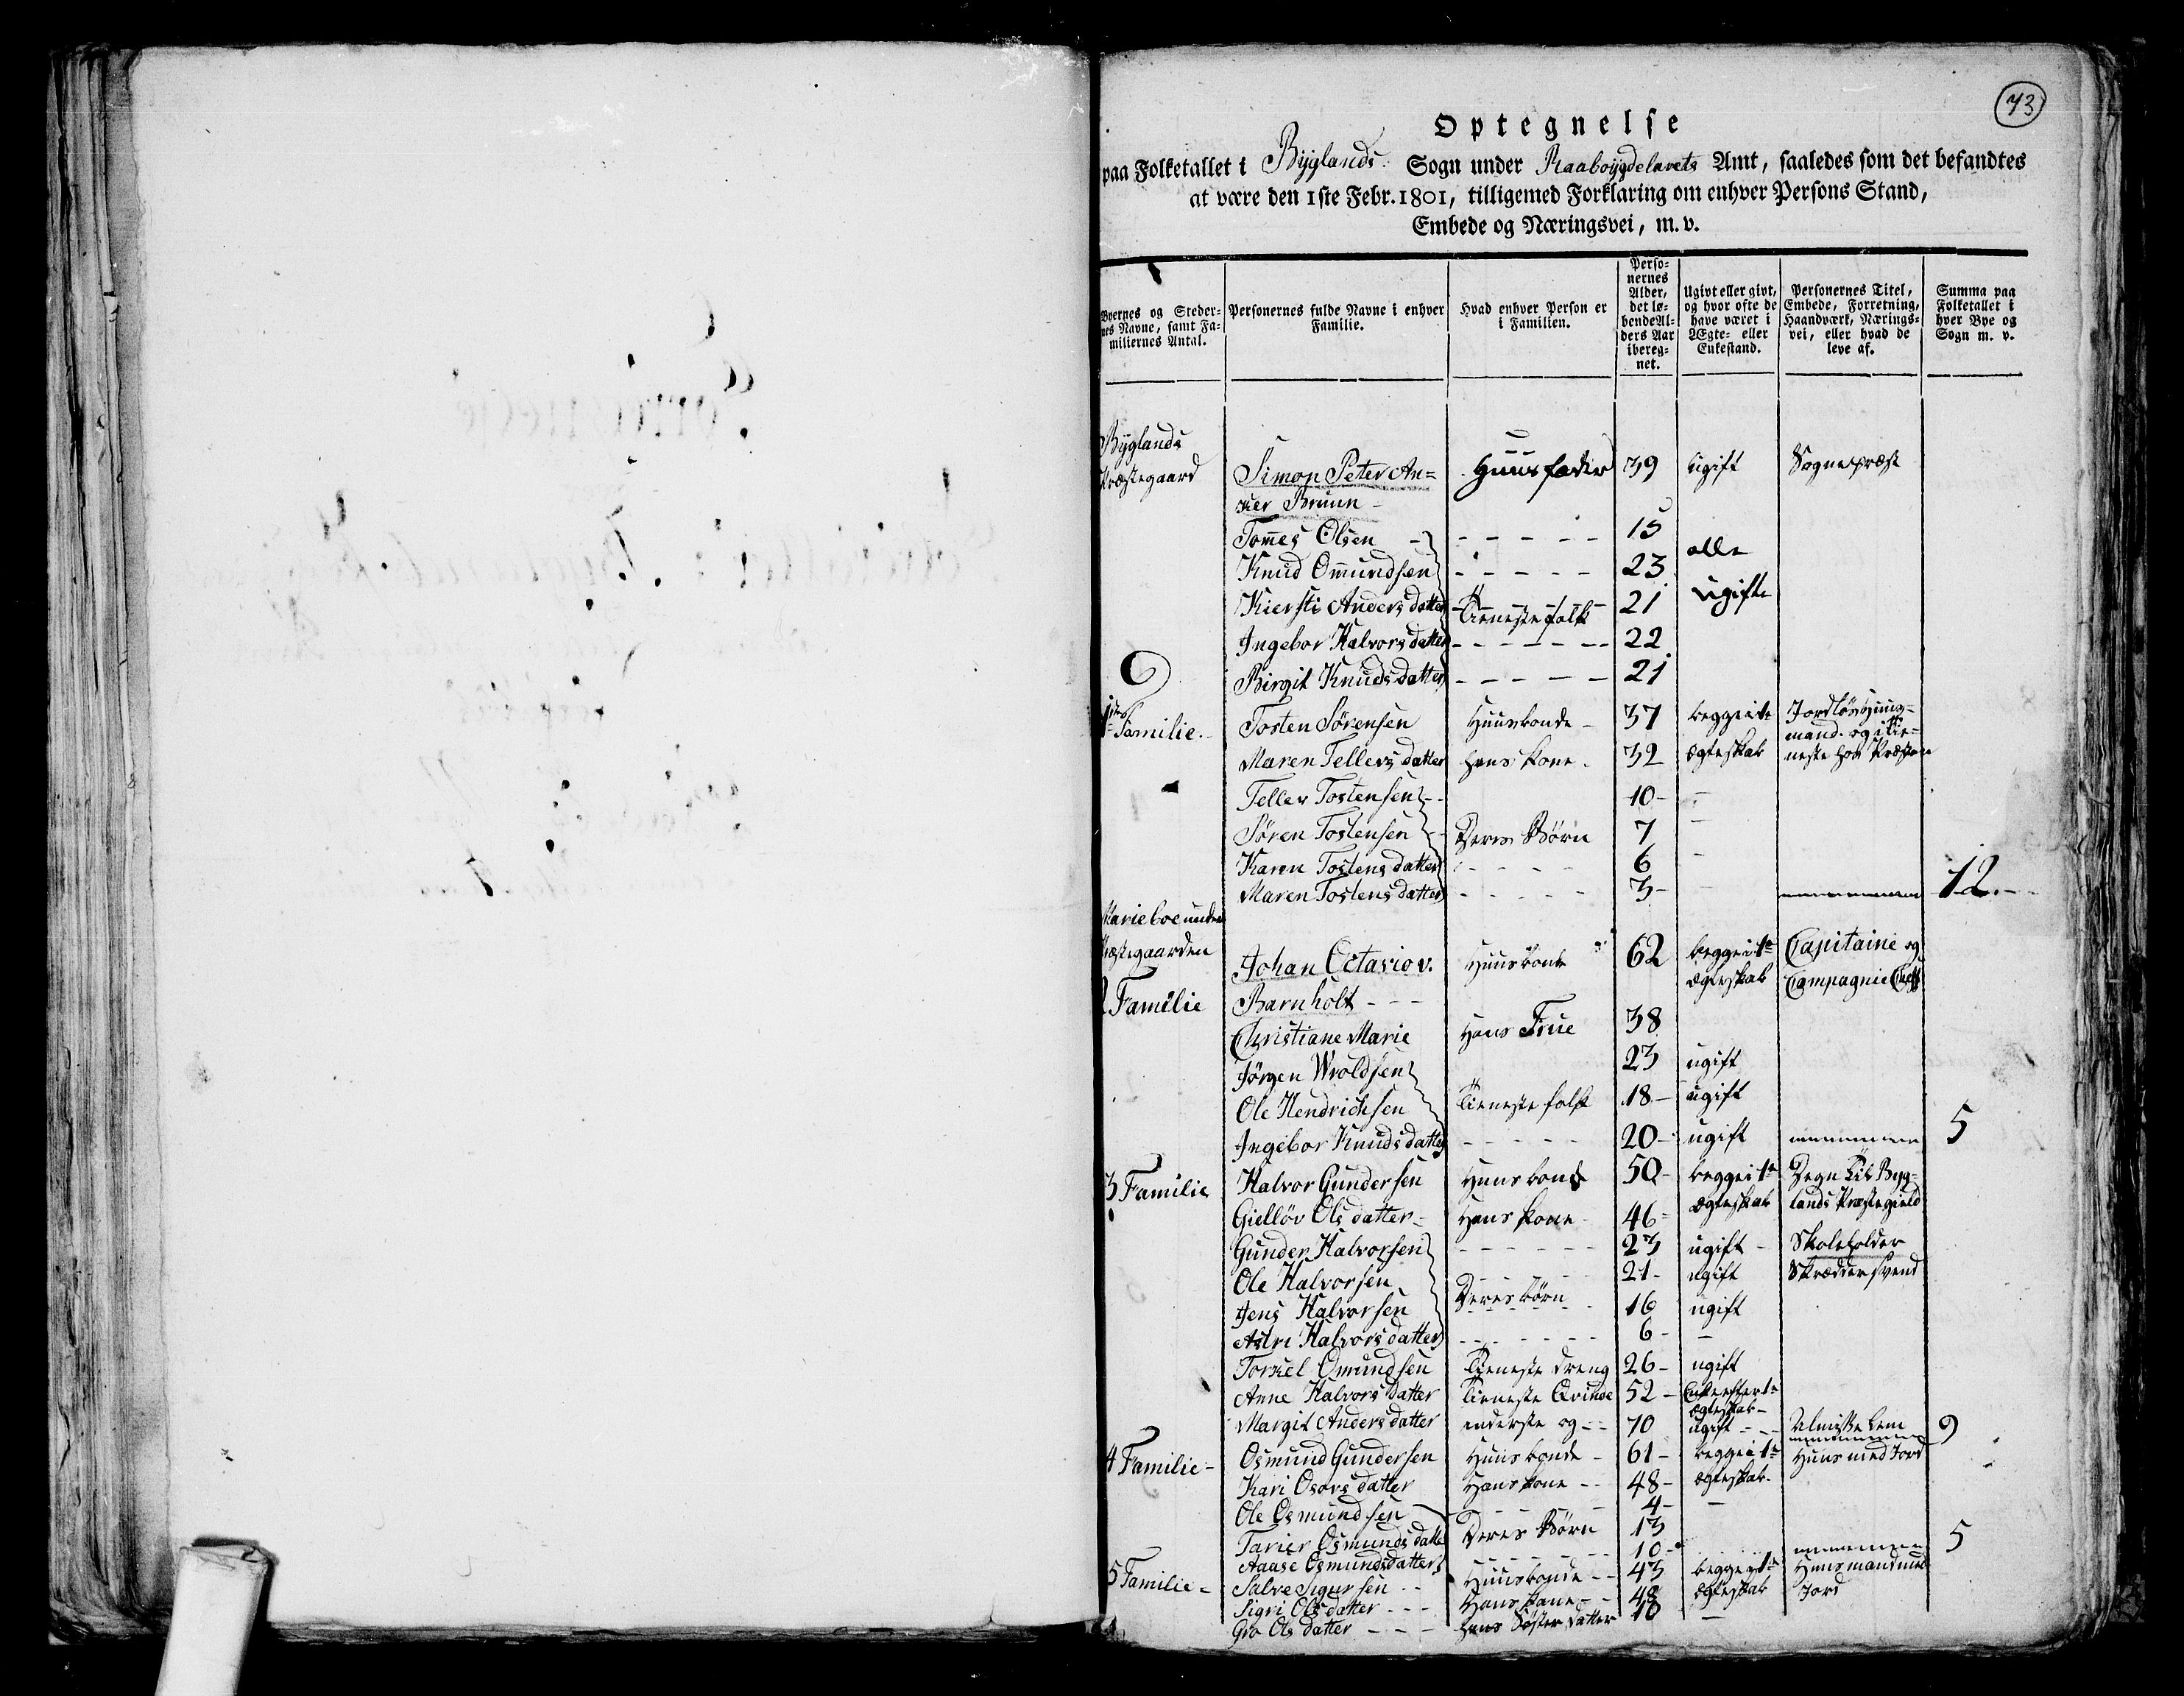 73
Optegnelse
paa Folketallet i Byglands Sogn under Raabøygdelavets Amt, saaledes som det befandtes
at være den 1ste Febr. 1801, tilligemed Forklaring om enhver Persons Stand,
Embede og Næringsvei, m. v.
Byernes og Steder- Personernes fulde Navne i enhver Familie. Hvad enhver Person er i Familien. Personernes Alder, det løbende Alders Aar iberegnet. Ugivt eller givt, og hvor ofte de have været i Ægte- eller Enkestand. Personernes Titel, Embede, Forretning, Haandværk, Næringsvei, eller hvad de leve af. Summa paa Folketallet i hver Bye og Sogn m. v.
nes Navne, samt Fa-
miliernes Antal.
Byglands
Præstegaard Simon Peter An= Huusfader 39 ugift Sognepræst
ker Bruun -
Tomes Olsen - 15
Knud Omundsen 23 alle
Kiersti Anders datter Tieneste folk 21 ugifte
Ingebor Halvors datter 22
Birgit Knuds datter 21
6
1ste Familie. Tosten Sørensen Huusbonde - 37 begge i 1te Jordløs Huus=
mand. og i Tie=
Maren Tellevs datter hans kone. 32 ægteskab neste hos Præsten
Tellev Tostensen 10 -
Søren Tostensen Deres Børn 7
Karen Tostens datter 6
Maren Tostens datter 3 - 12.-
Marieboe under
Præstegaarden
2 Familie Johan Octavio v. Huusbonde 62 begge i 1te Capitaine og
Barnholt - - - ægteskab Compagnie Cheff
Christiane Marie Hans Frue 38
Jørgen Wroldsen 23 ugift
Ole Hendrichsen Tieneste folk 18 - ugift
Ingebor Knuds datter 20 - ugift 5
3 Familie Halvor Gundersen Huusbonde 50 - begge i 1te Degn til Byg=
Gielløv Ols datter - Hans kone - 46 - ægteskab lands Præstegield
Gunder Halvorsen 23 ugift - Skoleholder
Ole Halvorsen 21 - ugift Skræddersvend
Jens Halvorsen Deres børn 16 ugift
Astri Halvors datter 6 - -
Torkel Omundsen Tieneste dreng 26 - ugift
Anne Halvors datter Tieneste Qvinde 52 - Enke efter 1te
ægteskab -
Margit Anders datter inderste og - - 70 ugift - - - Almisse Lem 9
4 Familie - Osmund Gundersen Huusbonde - 61 - begge i 1te Huus med Jord
Kari Osors datter Hans kone - - 48 - ægteskab.
Ole Osmundsen 4 - -
Tarier Osmunds datter Deres Børn 13
Aaase Osmundsdatter 10 - 5
5 Familie - Salve Sigursen - - Huusbonde - - 43 begge i 1te Huusmand med
Sigri Ols datter - - - Hans kone - - 48 ægteskab Jord
Gro Ols datter - - - hans Søster datter 10 -